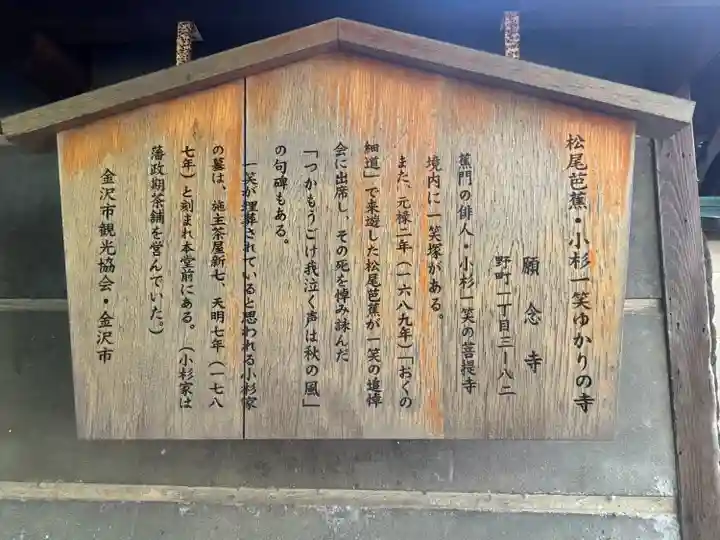 松尾芭蕉・小杉一笑ゆかりの寺
願念寺
野町一丁目三ー八二
蕉門の俳人・小杉一笑の菩提寺
境内に一笑塚がある。
また、元禄二年（一六八九年）「おくの
細道」で来遊した松尾芭蕉が一笑の追悼
会に出席し、その死を悼み詠んだ
「つかもうごけ我泣く声は秋の風」
の句碑もある。
一笑が埋葬されていると思われる小杉家
の墓は、施主茶屋新七、天明七年（一七八
七年）と刻まれ本堂前にある。（小杉家は
藩政期茶舗を営んでいた。）
金沢市観光協会・金沢市